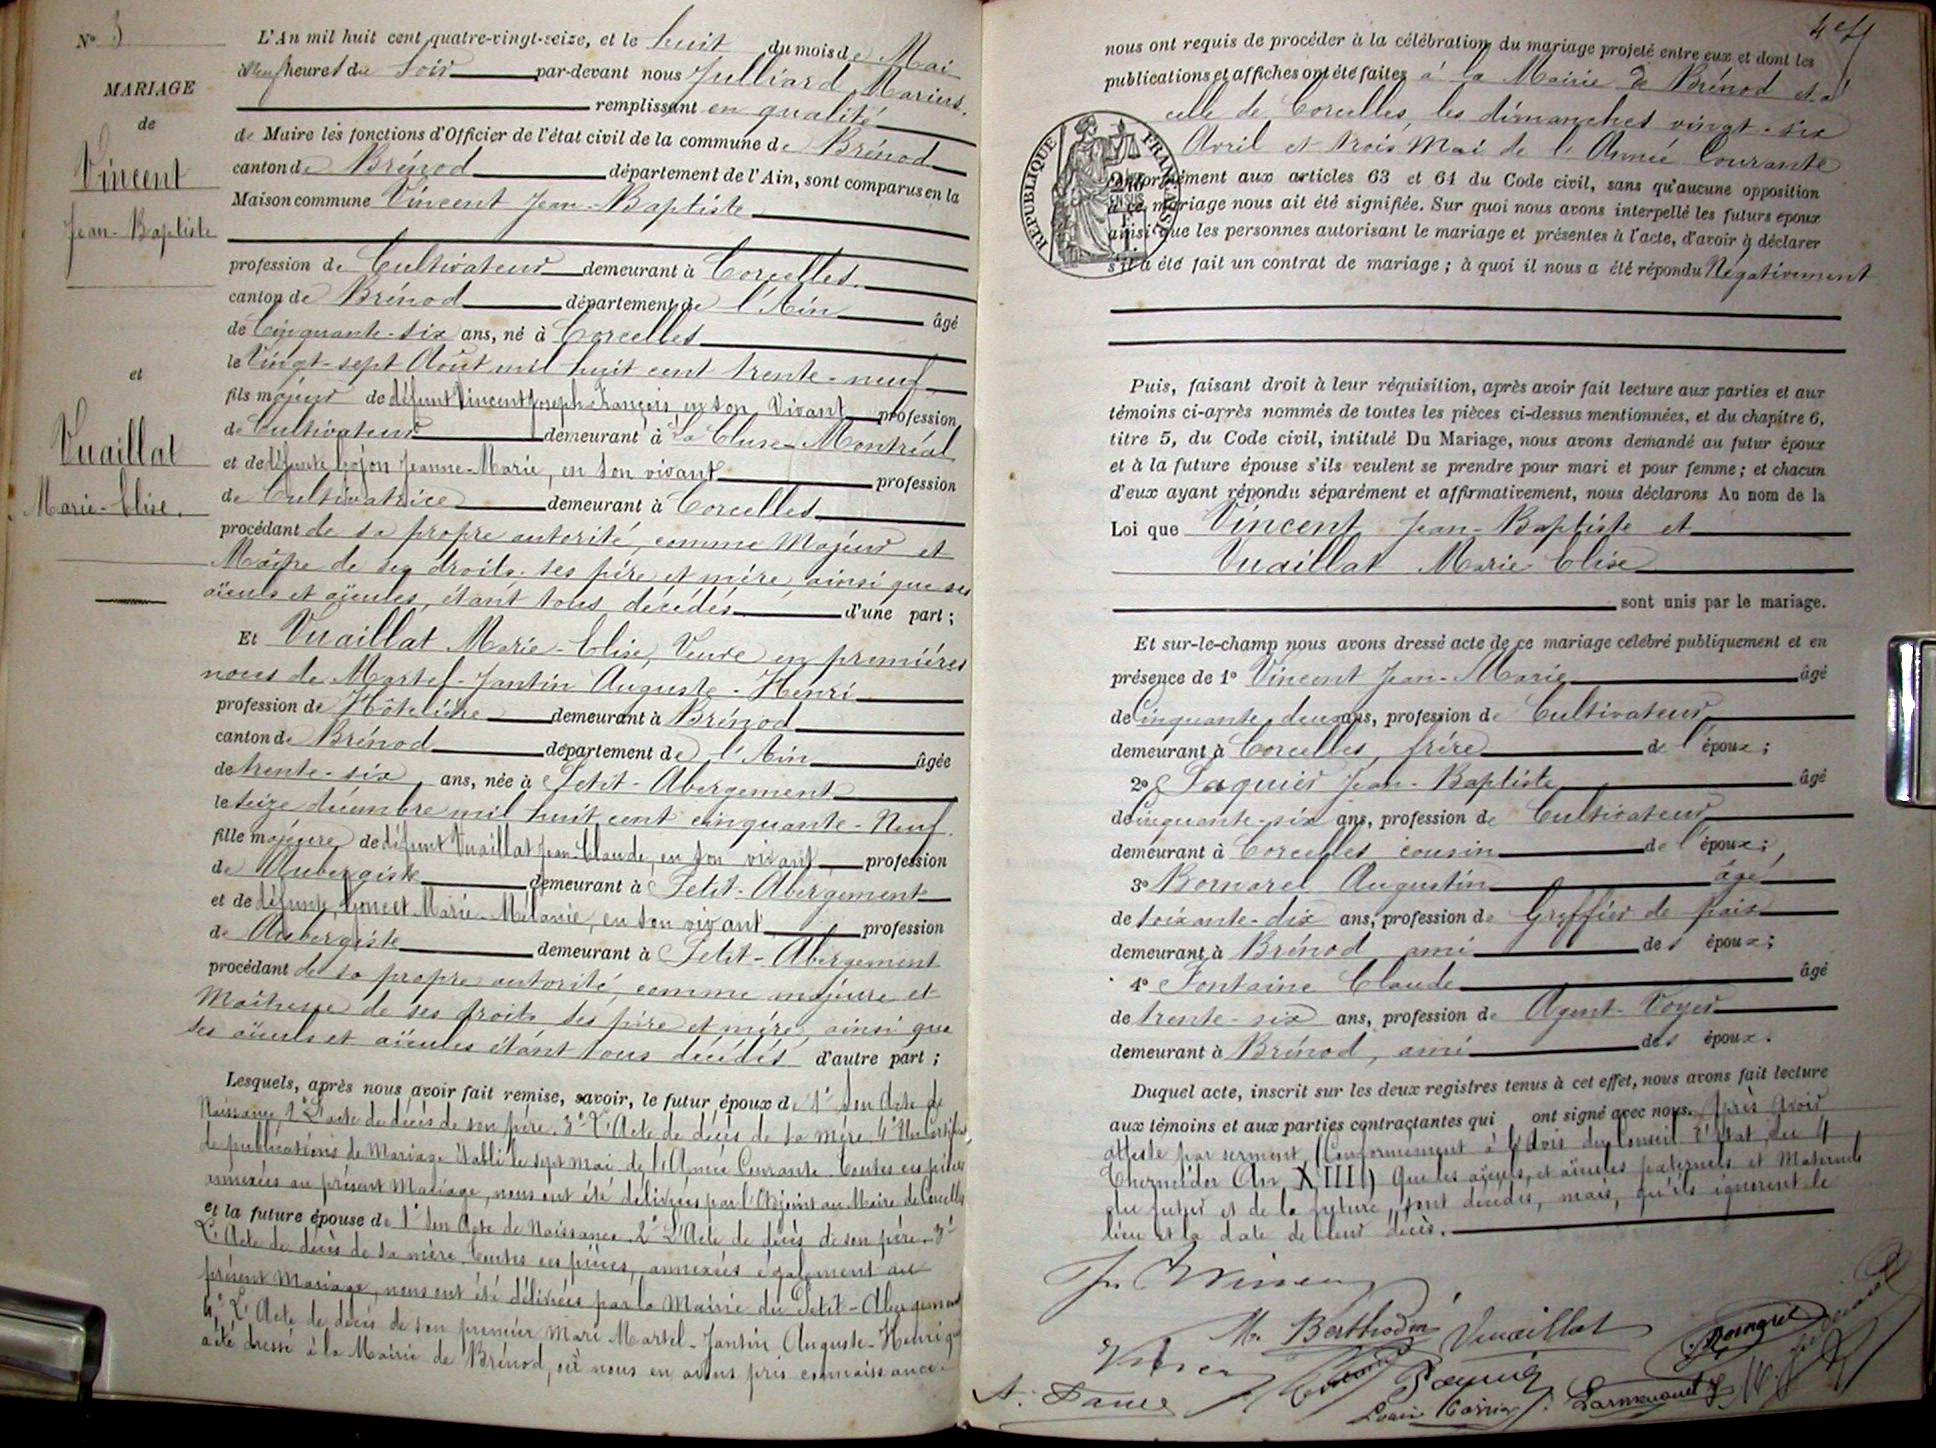 N° 3
MARIAGE
de
Vincent
Jean-Baptiste
et
Vuaillat
Marie-Elise.
L'An mil huit cent quatre-vingt-seize, et le huit du mois de Mai
heures du Soir par-devant nous Julliard Marius.
remplissant en qualité
de Maire les fonctions d'Officier de l'état civil de la commune de Brénod
canton de Brénod département de l'Ain, sont comparus en la
Maison commune Vincent Jean-Baptiste
profession de Cultivateur demeurant à Corcelles.
canton de Brénod département de l'Ain âgé
de Cinquante-six ans, né à Corcelles
le Vingt-sept Août mil huit cent trente-neuf
fils majeur de défunt Vincent Joseph François, en son Vivant profession
de Cultivateur demeurant à La Cluse-Montréal
et de défunte Cojon Jeanne-Marie, en son vivant profession
de Cultivatrice demeurant à Corcelles
procédant de sa propre autorité, comme Majeur et
Maître de ses droits. ses père et mère, ainsi que ses
aïeuls et aïeules, étant tous décédés d'une part;
Et Vuaillat Marie-Elise, Veuve en premières
noces de Martel-Jantin Auguste-Henri
profession de Hôtelière demeurant à Brénod
canton de Brénod département de l'Ain âgée
de trente-six ans, née à Petit-Abergement
le seize décembre mil huit cent cinquante-Neuf.
fille majeure de défunt Vuaillat Jean Claude, en son vivant profession
de Aubergiste demeurant à Petit-Abergement
et de défunte Marie-Mélanie, en son vivant profession
de Aubergiste demeurant à Petit-Abergement
procédant de sa propre autorité, comme majeure et
Maîtresse de ses droits ses père et mère, ainsi que
ses aïeuls et aïeules étant tous décédés d'autre part;
Lesquels, après nous avoir fait remise, savoir, le futur époux de 1° Son Acte de
Naissance, 2° L'acte de décès de son père. 3° L'Acte de décès de sa mère 4° Un Certificat
de publications de Mariage établi le sept mai de l'Année Courante. Toutes ces pièces
annexées au présent Mariage, nous ont été délivrées par l'Adjoint au Maire de Corcelles
et la future épouse de 1° Son Acte de Naissance. 2° L'Acte de décès de son père. 3°
L'Acte de décès de sa mère. Toutes ces pièces, annexées également au
présent Mariage, nous ont été délivrées par la Mairie du Petit-Abergement
4° L'Acte de décès de son premier Mari Martel-Jantin Auguste-Henri qui
a été dressé à la Mairie de Brénod, où nous en avons pris connaissance.
nous ont requis de procéder à la célébration du mariage projeté entre eux et dont les
publications et affiches ont été faites à la Mairie de Brénod et à
celle de Corcelles, les dimanches vingt-six
Avril et trois Mai de l'Année Courante
RÉPUBLIQUE FRANÇAISE
Conformément aux articles 63 et 64 du Code civil, sans qu'aucune opposition
à ce mariage nous ait été signifiée. Sur quoi nous avons interpellé les futurs époux
ainsi que les personnes autorisant le mariage et présentes à l'acte, d'avoir à déclarer
s'il a été fait un contrat de mariage; à quoi il nous a été répondu Négativement
Puis, faisant droit à leur réquisition, après avoir fait lecture aux parties et aux
témoins ci-après nommés de toutes les pièces ci-dessus mentionnées, et du chapitre 6,
titre 5, du Code civil, intitulé Du Mariage, nous avons demandé au futur époux
et à la future épouse s'ils veulent se prendre pour mari et pour femme; et chacun
d'eux ayant répondu séparément et affirmativement, nous déclarons Au nom de la
Loi que Vincent Jean-Baptiste et
Vuaillat Marie-Elise
sont unis par le mariage.
Et sur-le-champ nous avons dressé acte de ce mariage célébré publiquement et en
présence de 1° Vincent Jean-Marie âgé
de Cinquante deux ans, profession de Cultivateur
demeurant à Corcelles, frère de l'époux;
2° Paquier Jean-Baptiste âgé
de cinquante-six ans, profession de Cultivateur
demeurant à Corcelles cousin de l'époux;
3° Bornarel Augustin âgé
de soixante-dix ans, profession de Greffier de paix
demeurant à Brénod ami des époux;
4° Fontaine Claude âgé
de trente-six ans, profession de Agent-Voyer
demeurant à Brénod, ami des époux.
Duquel acte, inscrit sur les deux registres tenus à cet effet, nous avons fait lecture
aux témoins et aux parties contractantes qui ont signé avec nous. Après avoir
attesté par serment, (Conformément à l'Avis du Conseil d'État du 4
Thermidor An XIII) Que les aïeuls, et aïeules paternels et Maternels
du futur et de la future, sont décédés, mais, qu'ils ignorent le
lieu et la date de leur décès.
M. Berthodin Vuaillat Bornarel
A. Faure Paquier